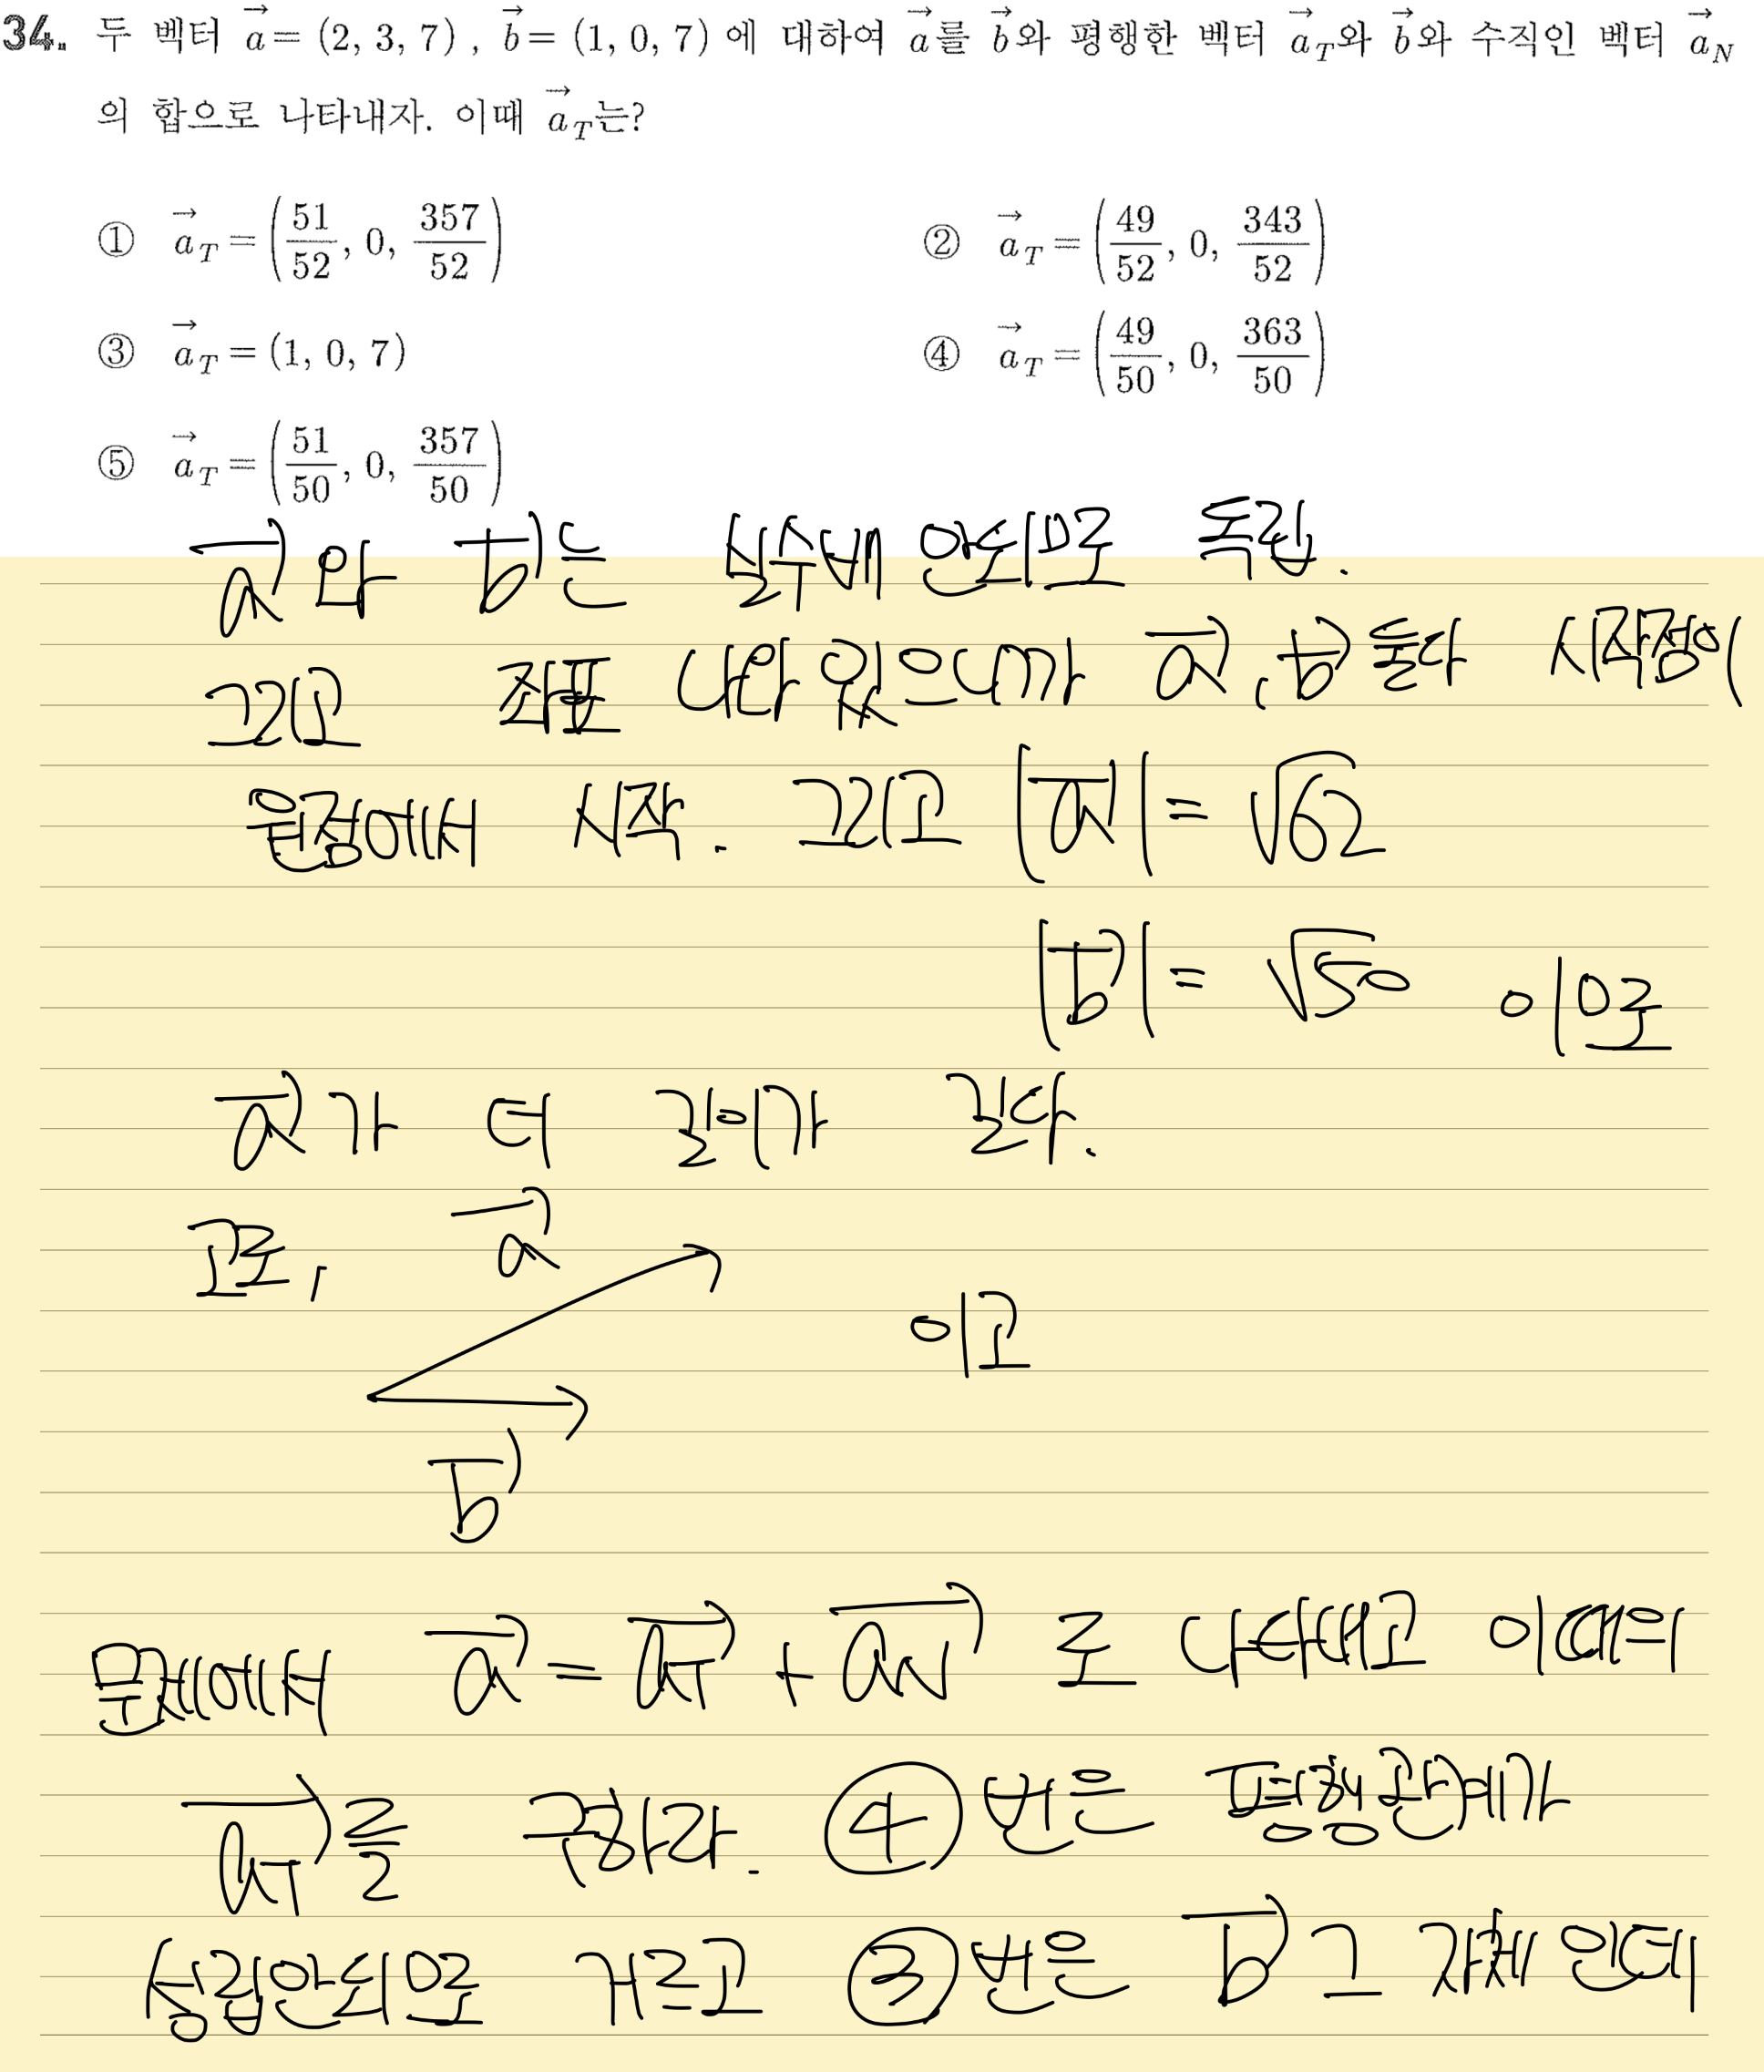 34. 두 벡터 $\vec{a}=(2, 3, 7)$, $\vec{b}=(1, 0, 7)$에 대하여 $\vec{a}$를 $\vec{b}$와 평행한 벡터 $\vec{a}_T$와 $\vec{b}$와 수직인 벡터 $\vec{a}_N$
의 합으로 나타내자. 이때 $\vec{a}_T$는?
① $\vec{a}_T=\left(\frac{51}{52}, 0, \frac{357}{52}\right)$ ② $\vec{a}_T=\left(\frac{49}{52}, 0, \frac{343}{52}\right)$
③ $\vec{a}_T=(1, 0, 7)$ ④ $\vec{a}_T=\left(\frac{49}{50}, 0, \frac{363}{50}\right)$
⑤ $\vec{a}_T=\left(\frac{51}{50}, 0, \frac{357}{50}\right)$
$\vec{a}$와 $\vec{b}$는 실수배 안되므로 독립.
그리고 좌표 나와 있으니까 $\vec{a}$, $\vec{b}$ 둘다 시작점이
원점에서 시작. 그리고 $|\vec{a}|=\sqrt{62}$
$|\vec{b}|=\sqrt{50}$ 이므로
$\vec{a}$가 더 길이가 길다.
고로, $\vec{a}$
이고
$\vec{b}$
문제에서 $\vec{a}=\vec{a_T}+\vec{a_N}$ 로 나타내고 이때의
$\vec{a_T}$를 구하라. ④번은 평행관계가
성립안되므로 거르고 ③번은 $\vec{b}$ 그 자체인데